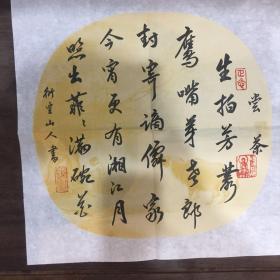 尝茶
生拍芳丛
鹰嘴芽老郎
封寄谪仙家
今宵更有湘江月
照出菲〻满碗花
衍云山人书